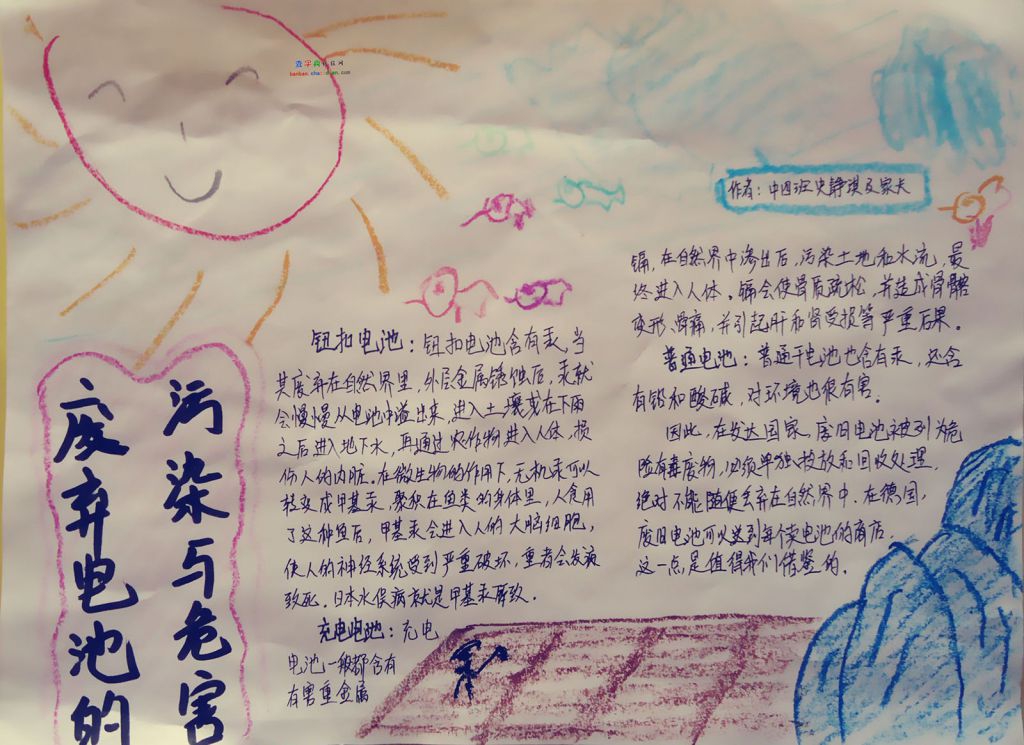 查字典
作者：中四班史铮琪及家长
废弃电池的
污染与危害
钮扣电池：钮扣电池含有汞，当
其废弃在自然界里，外层金属锈蚀后，汞就
会慢慢从电池中溢出来，进入土壤或在下雨
之后进入地下水，再通过农作物进入人体，损
伤人的内脏。在微生物的作用下，无机汞可以
转变成甲基汞，聚积在鱼类的身体里，人食用
了这种鱼后，甲基汞会进入人的大脑细胞，
使人的神经系统受到严重破坏，重者会发疯
致死。日本水俣病就是甲基汞所致。
充电电池：充电
电池一般都含有
有害重金属
镉，在自然界中渗出后，污染土地和水流，最
终进入人体。镉会使骨质疏松，并造成骨骼
变形、骨痛，并引起肝和肾受损等严重后果。
普通电池：普通干电池也含有汞，还含
有铅和酸碱，对环境也很有害。
因此，在发达国家，废旧电池被列为危
险有毒废物，必须单独投放和回收处理，
绝对不能随便丢弃在自然界中。在德国，
废旧电池可以送到每个卖电池的商店。
这一点是值得我们借鉴的。